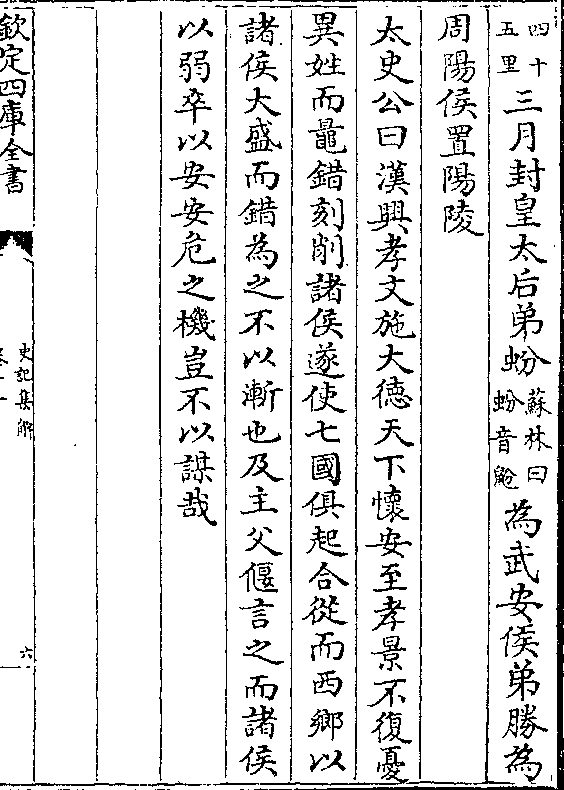 四十五里三月封皇太后弟蚡蘇林曰蚡音鼢為武安侯弟勝為
周陽侯置陽陵
太史公曰漢興孝文施大德天下懷安至孝景不復憂
異姓而鼂錯刻削諸侯遂使七國俱起合從而西鄉以
諸侯大盛而錯為之不以漸也及主父偃言之而諸侯
以弱卒以安安危之機豈不以謀哉
欽定四庫全書
史記集解
六